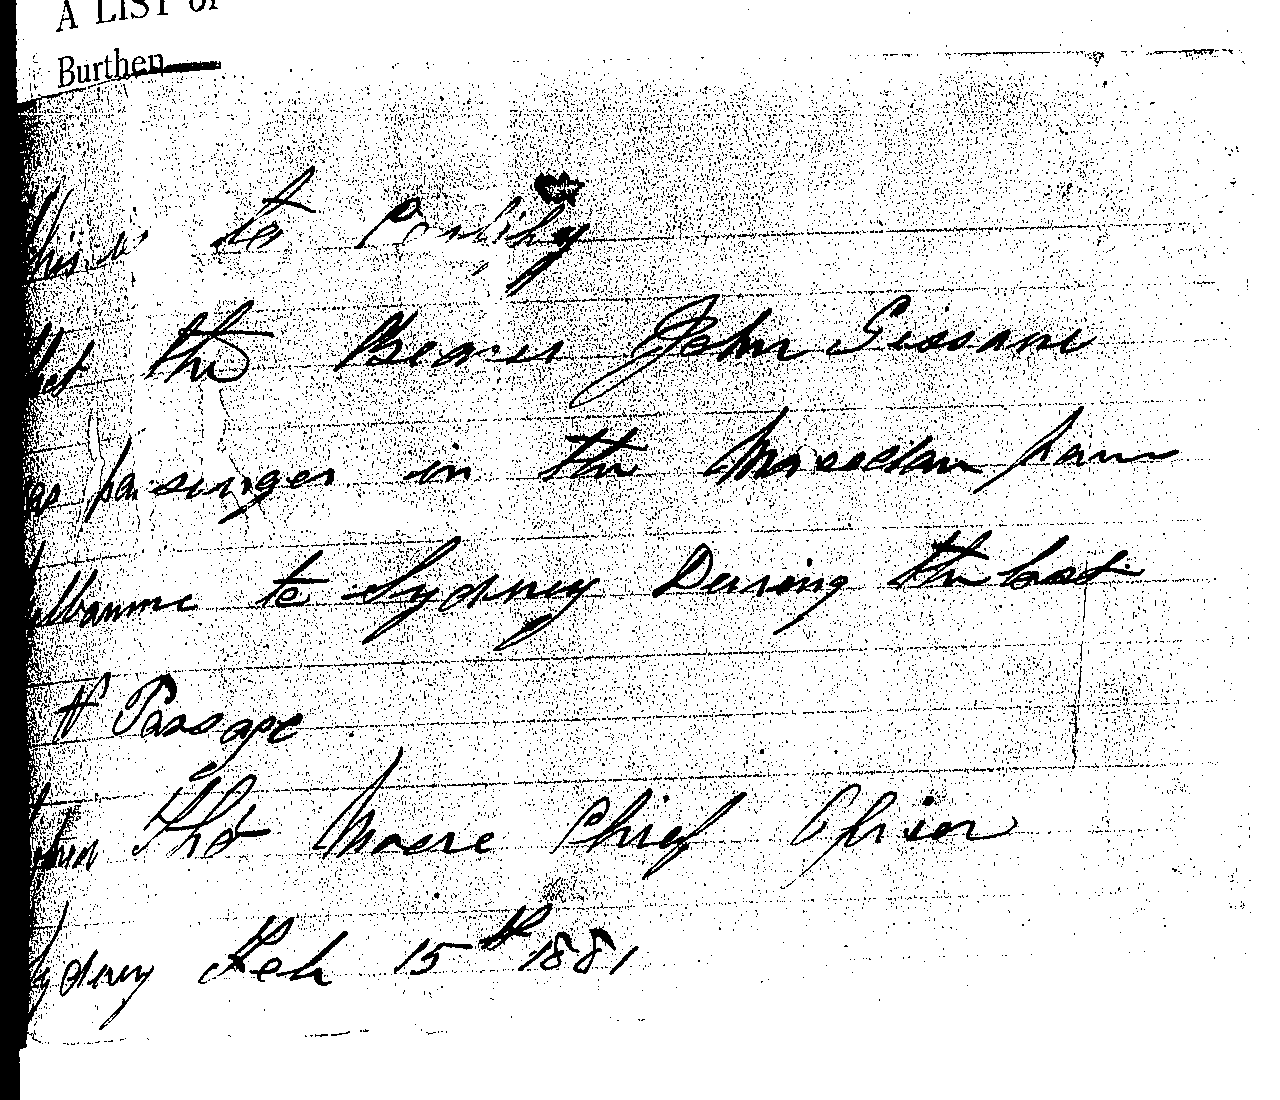 A LIST of
Burthen
this is to Certify
that the Bearer John Gissane
as passinger in the Masselan from
elbourne to Sydney During the last
of Passage
Tho Moore Chief Oficer
Sydney Feb 15th 1881